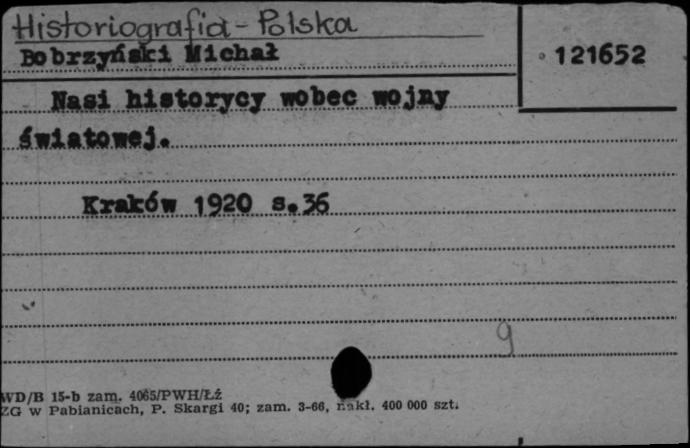 Historiografia - Polska
Bobrzyński Michał
121652
Nasi historycy wobec wojny
światowej.
Kraków 1920 s.36
9
WD/B 15-b zam. 4065/PWH/Łź
ZG w Pabianicach, P. Skargi 40; zam. 3-66, nakł. 400 000 szt.